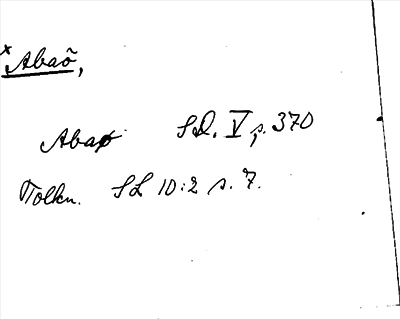 × Abaō,
Abaø SD. V s. 370
Tolkn. SL 10:2 s. 7.